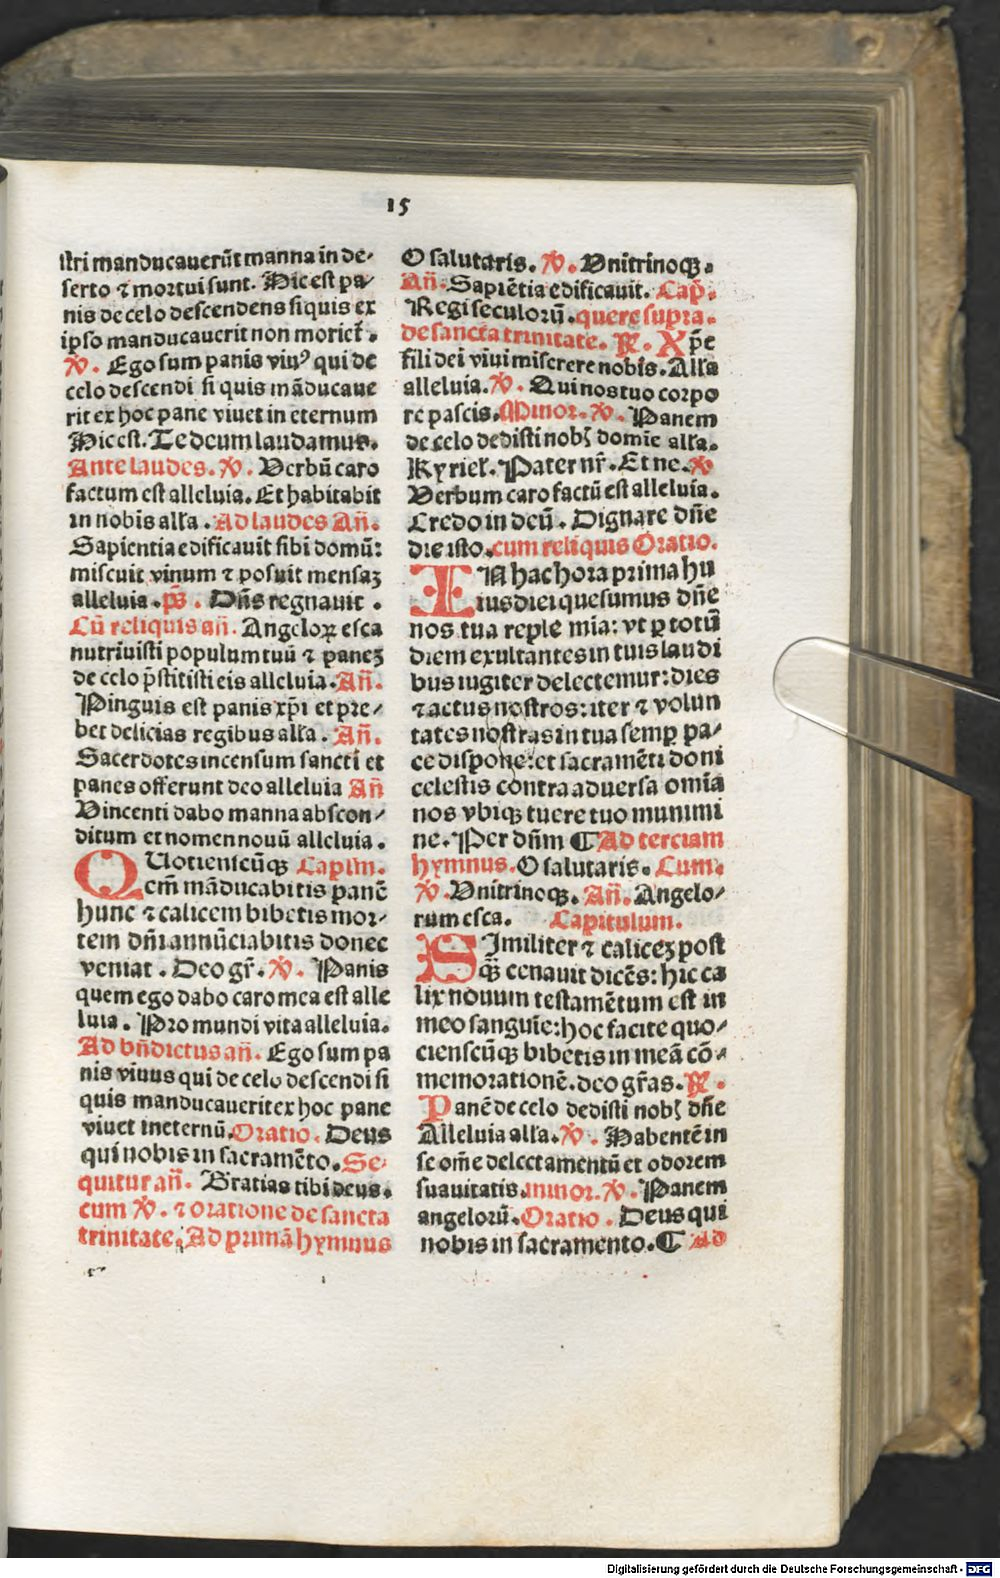 15
stri manducauerūt manna in de⸗
serto ⁊ mortui sunt. Hic est pa⸗
nis de celo descendens si quis ex
ipso manducauerit non moriet̄.
℣. Ego sum panis viuꝰ qui de
celo descendi si quis māducaue
rit ex hoc pane viuet in eternum
Hic est. Te deum laudamus.
Ante laudes. ℣. Verbū caro
factum est alleluia. Et habitabit
in nobis all'a. Ad laudes Añ.
Sapientia edificauit sibi domū:
miscuit vinum ⁊ posuit mensaꝫ
alleluia. p̄s. Dñs regnauit.
Cū reliquis añ. Angeloꝝ esca
nutriuisti populum tuū ⁊ paneꝫ
de celo p̄stitisti eis alleluia. Añ.
Pinguis est panis xp̄i et pre⸗
bet delicias regibus all'a. Añ.
Sacerdotes incensum sancti et
panes offerunt deo alleluia Añ
Vincenti dabo manna abscon⸗
ditum et nomen nouū alleluia.
QUotienscūqꝫ Capim.
em̄ māducabitis panē
hunc ⁊ calicem bibetis mor⸗
tem dñi annūciabitis donec
veniat. Deo gr̄. ℣. Panis
quem ego dabo caro mea est alle
luia. Pro mundi vita alleluia.
Ad bñdictus añ. Ego sum pa
nis viuus qui de celo descendi si
quis manducauerit ex hoc pane
viuet in eternū. Oratio. Deus
qui nobis in sacramēto. Se⸗
quitur añ. Gratias tibi deus.
cum ℣. ⁊ oratione de sancta
trinitate. Ad primā hymnus
O salutaris. ℣. Vni trinoqꝫ.
Añ. Sapiētia edificauit. Cap̄.
Regi seculorū. quere supra.
de sancta trinitate. ℟. Xp̄e
fili dei viui miserere nobis. All'a
alleluia. ℣. Qui nos tuo corpo
re pascis. Minor. ℣. Panem
de celo dedisti nobꝭ domīe all'a.
Kyriel'. Pater nr̄. Et ne. ℣
Verbum caro factū est alleluia.
Credo in deū. Dignare dñe
die isto. cum reliquis Oratio.
IN hac hora prima hu
ius diei quesumus dñe
nos tua reple mīa: vt ꝑ totū
diem exultantes in tuis laudi
bus iugiter delectemur: dies
⁊ actus nostros: iter ⁊ volun
tates nostras in tua semꝑ pa⸗
ce dispone: et sacramēti doni
celestis contra aduersa omīa
nos vbiqꝫ tuere tuo munimi
ne. Per dñm ¶ Ad terciam
hymnus. O salutaris. Cum.
℣. Vni trinoqꝫ. Añ. Angelo⸗
rum esca. Capitulum.
SImiliter ⁊ caliceꝫ post
qꝫ̄ cenauit dicēs: hic ca
lix nouum testamētum est in
meo sanguīe: hoc facite quo⸗
cienscūqꝫ bibetis in meā cō⸗
memorationē. deo gr̄as. ℟.
Panē de celo dedisti nobꝭ dñe
Alleluia all'a. ℣. Habentē in
se om̄e delectamentū et odorem
suauitatis. minor. ℣. Panem
angelorū. Oratio. Deus qui
nobis in sacramento. ¶ Ad
Digitalisierung gefördert durch die Deutsche Forschungsgemeinschaft - DFG